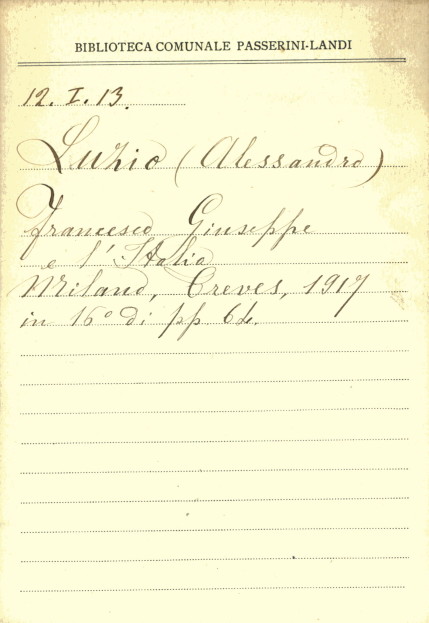 BIBLIOTECA COMUNALE PASSERINI-LANDI
12. I. 13.
Luzio (Alessandro)
Francesco Giuseppe
e l'Italia
Milano, Treves, 1917
in 16º di pp.